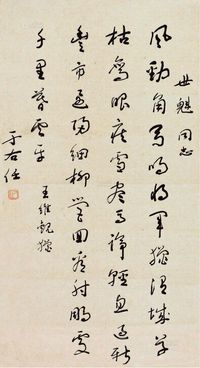 世魁同志
風勁角弓鳴將軍獵渭城草
枯鷹眼疾雪盡馬蹄輕忽過新
豐市還歸細柳營回看射鵰處
千里暮雲平 王維觀獵
于右任